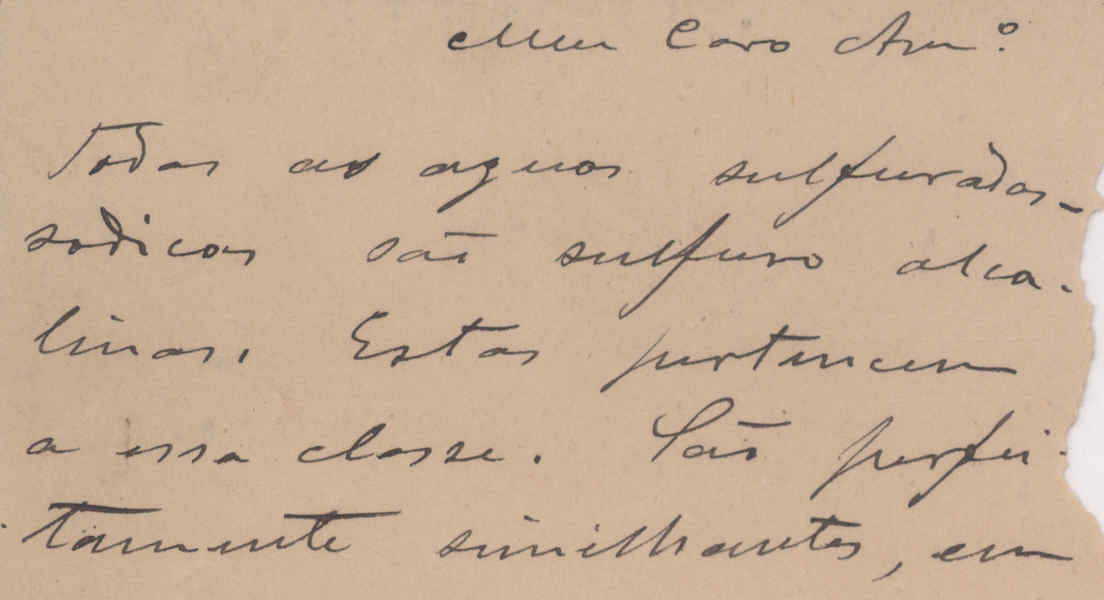 Meu Caro Amº
Todas as aguas sulfuradas-
sodicas são sulfuro alca-
linas. Estas pertencem
a essa classe. São perfei-
tamente similhantes, em